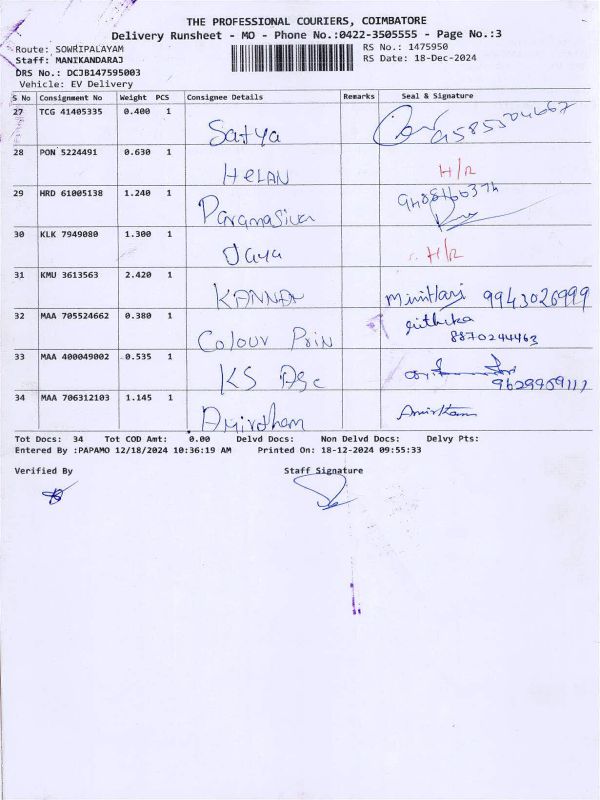 THE PROFESSIONAL COURIERS, COIMBATORE
Delivery Runsheet - MO - Phone No.:0422-3505555 - Page No.:3
Route: SOWRIPALAYAM
RS No.: 1475950
Staff: MANIKANDARAJ
RS Date: 18-Dec-2024
DRS No.: DCJB147595003
Vehicle: EV Delivery
S No Consignment No Weight PCS Consignee Details Remarks Seal & Signature
27 TCG 41405335 0.400 1 Satya
28 PON 5224491 0.630 1 HELAN H/R
29 HRD 61005138 1.240 1 Paramasivan
30 KLK 7949080 1.300 1 Jaya H/R
31 KMU 3613563 2.420 1 KANNAN 9943026999
32 MAA 705524662 0.380 1 Colour Prin 8870244463
33 MAA 400049002 0.535 1 KS 9629959111
34 MAA 706312103 1.145 1 Amirtham Amirtham
Tot Docs: 34 Tot COD Amt: 0.00 Delvd Docs: Non Delvd Docs: Delvy Pts:
Entered By :PAPAMO 12/18/2024 10:36:19 AM Printed On: 18-12-2024 09:55:33
Verified By Staff Signature